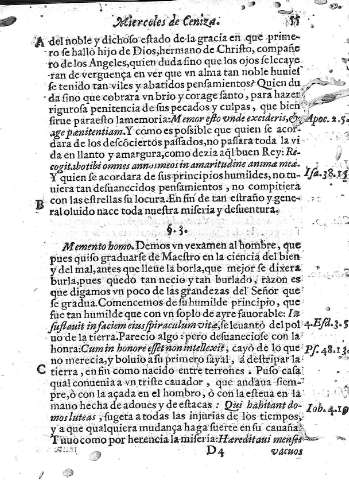 Miercoles de Ceniza. 55
A del noble y dichoso estado de la gracia en que prime-
ro se hallò hijo de Dios, hermano de Christo, compañe
ro de los Angeles, quien duda sino que los ojos se le caye
ran de verguença en ver que vn alma tan noble huuies
se tenido tan viles y abatidos pensamientos? Quien du
da sino que cobrara vn brio y corage santo, para hazer
rigurosa penitencia de sus pecados y culpas, que bien
sirue para esto la memoria: Memor esto vnde excideris, &
age pœnitentiam. Y como es possible que quien se acor
Apoc. 2.5.
dara de los desconciertos passados, no passara toda la vi
da en llanto y amargura, como dezia aql buen Rey: Re-
cogitabo tibi omnes annos meos in amaritudine animæ meæ.
Isa. 38.15
Y quien se acordara de sus principios humildes, no tu-
uiera tan desuanecidos pensamientos, no compitiera
con las estrellas su locura. En fin de tan estraño y gene-
B ral oluido nace toda nuestra miseria y desuentura.
§. 3.
Memento homo. Demos vn examen al hombre, que
pues quiso graduarse de Maestro en la ciencia del bien
y del mal, antes que lleue la borla, que mejor se dixera
burla, pues quedò tan necio y tan burlado, razon es
que digamos vn poco de las grandezas del Señor que
se gradua. Comencemos de su humilde principio, que
fue tan humilde que con vn soplo de ayre fauorable: In
sufflauit in faciem eius spiraculum vitæ, se leuantò del pol
uo de la tierra. Parecio algo: pero desuaneciose con la
4. Esd. 3.5
honra: Cum in honore esset non intellexit, cayò de lo que
Ps. 48.13.
no merecia, y boluio a su primero sayal, à destripar la
C tierra, en fin como nacido entre terrones. Puso casa
qual conuenia a vn triste cauador, que andaua siem-
pre, ò con la açada en el hombro, ò con la esteua en la
mano hecha de adoues y de estacas: Qui habitant do-
mos luteas, sugeta a todas las injurias de los tiempos,
Iob. 4.19
y a que qualquiera mudança haga suerte en su cauaña.
Tuuo como por herencia la miseria: Hæreditaui menses
D 4 vacuos